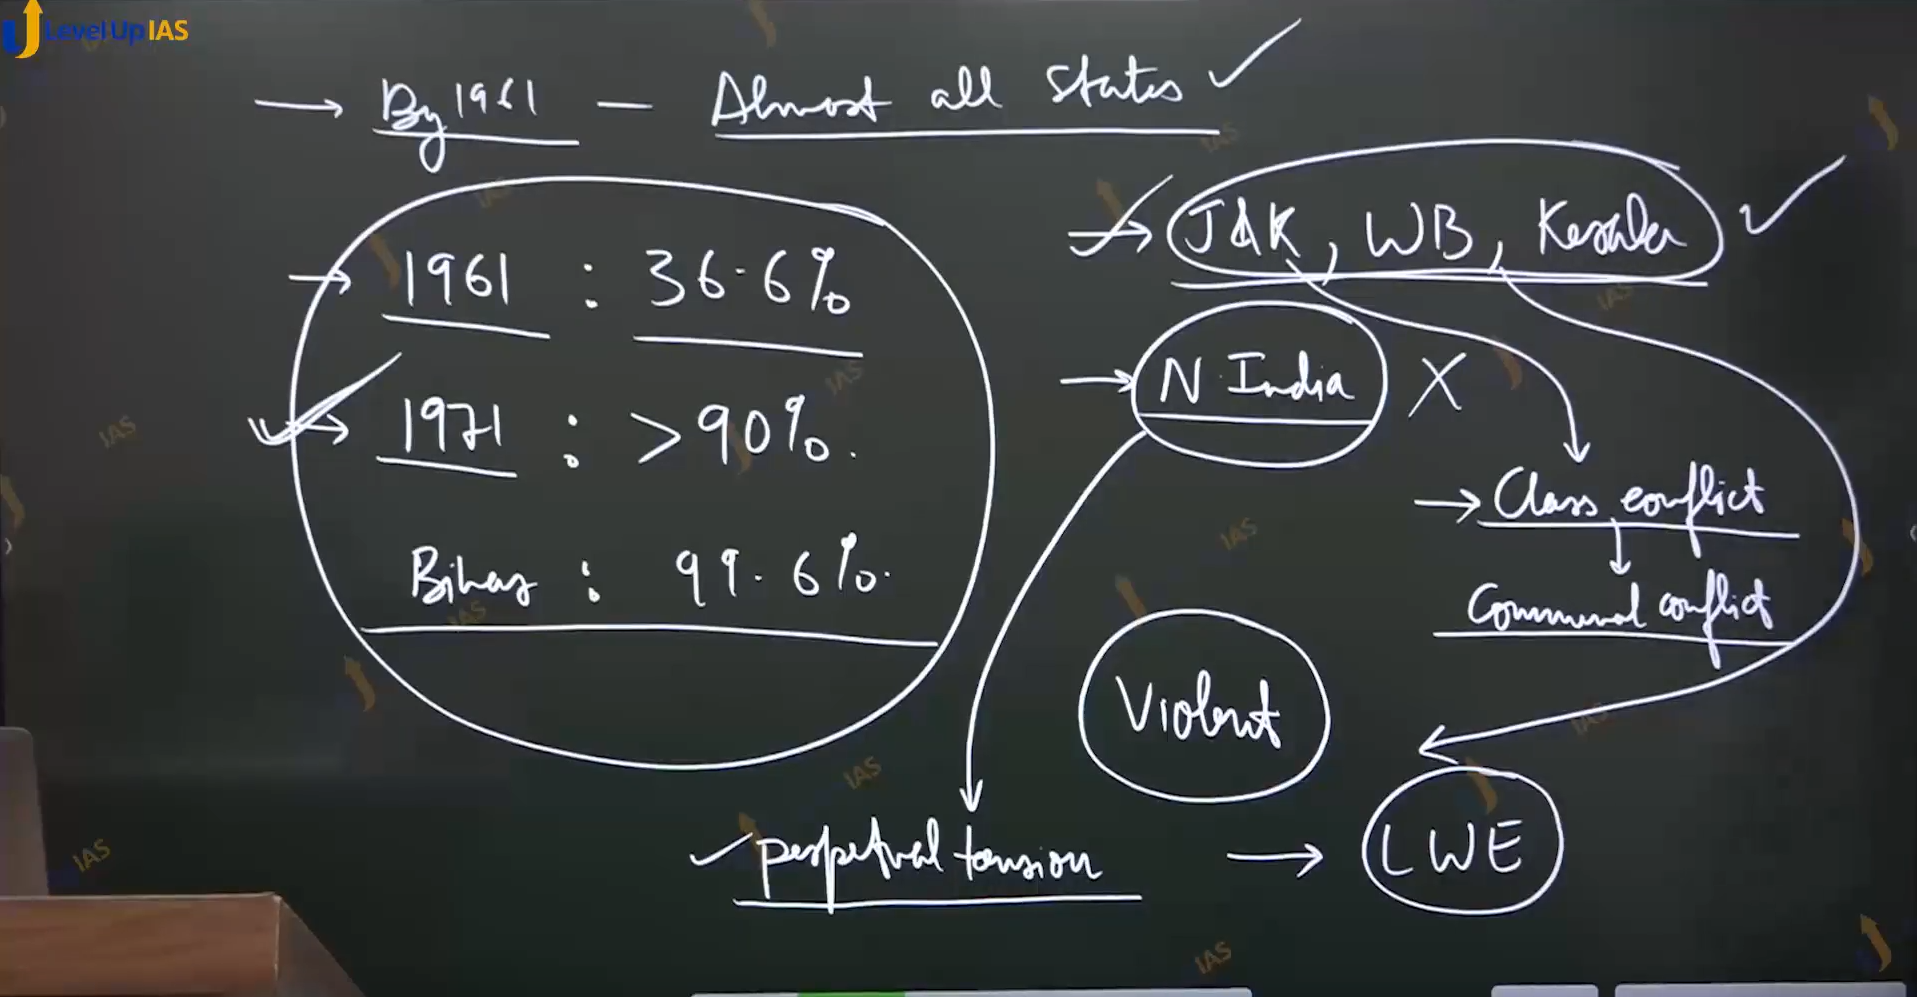 Level Up IAS
→ By 1961 — Almost all states ✓
→ 1961 : 36.6%
→ 1971 : >90%.
Bihar : 99.6%.
→ J&K, WB, Kerala ✓
→ N. India X
→ Class conflict
↓
Communal conflict
Violent
✓ perpetual tension → LWE
IAS
IAS
IAS
IAS
IAS
IAS
IAS
IAS
IAS
IAS
IAS